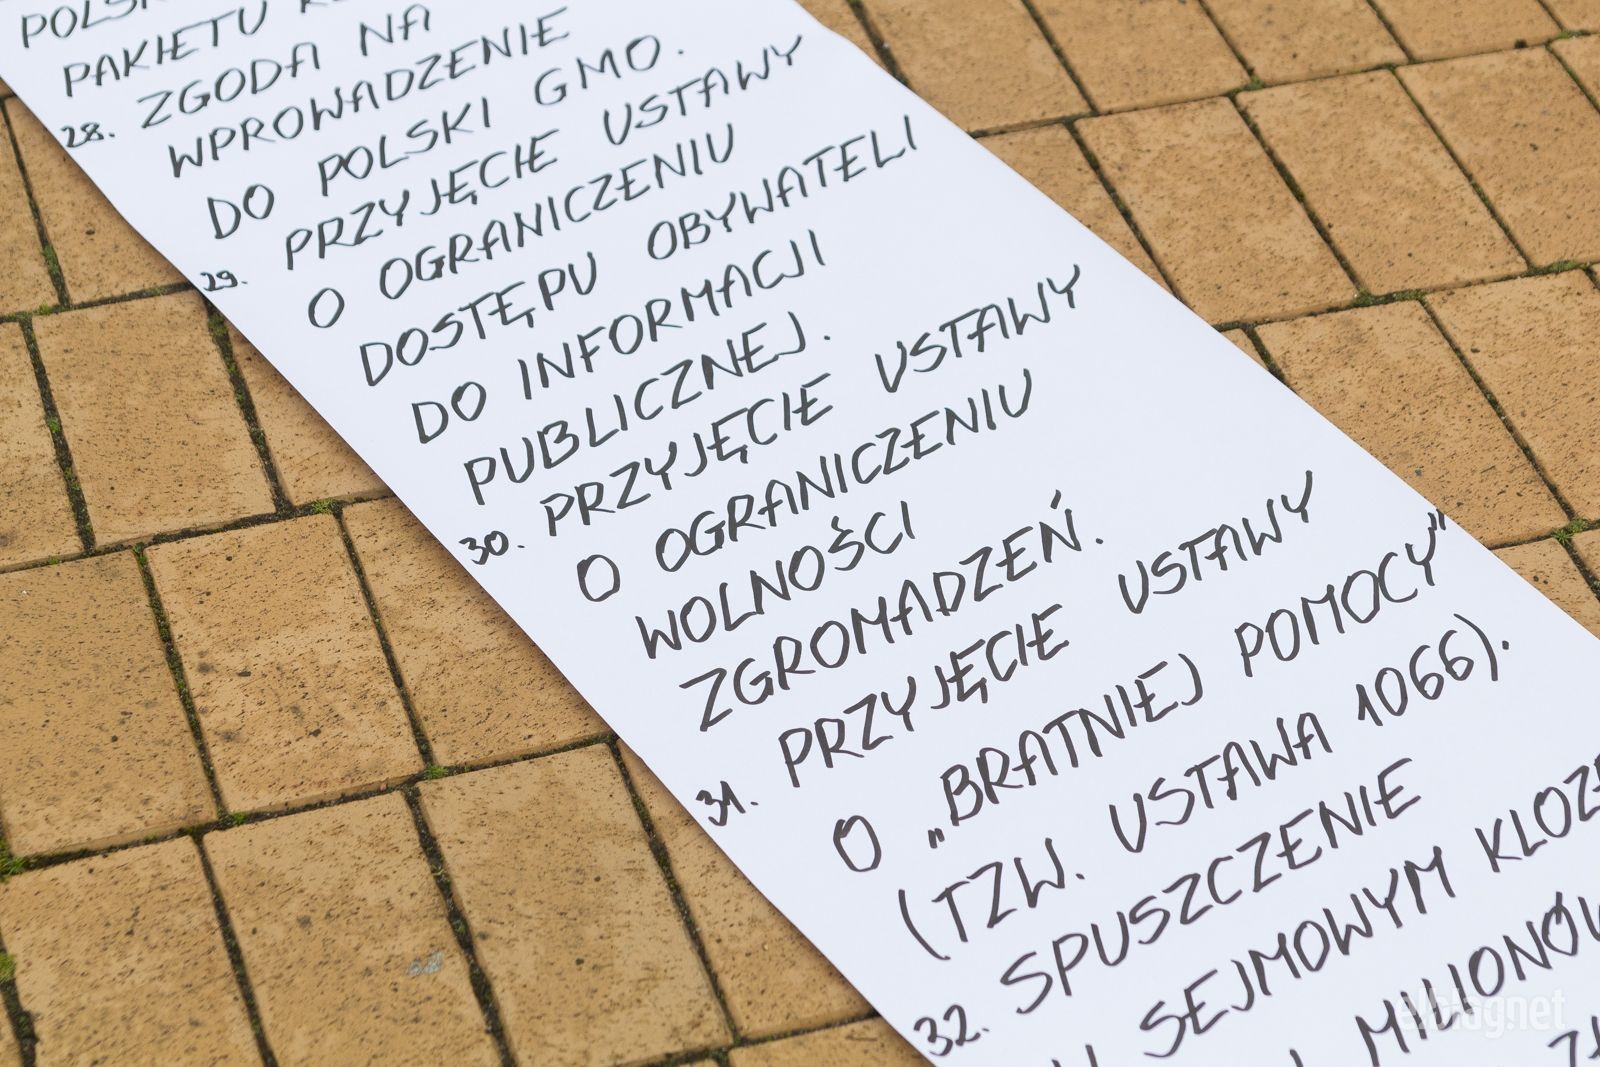 PAKIETU
28. ZGODA NA
WPROWADZENIE
DO POLSKI GMO.
29. PRZYJĘCIE USTAWY
O OGRANICZENIU
DOSTĘPU OBYWATELI
DO INFORMACJI
PUBLICZNEJ.
30. PRZYJĘCIE USTAWY
O OGRANICZENIU
WOLNOŚCI
ZGROMADZEŃ.
31. PRZYJĘCIE USTAWY
O „BRATNIEJ POMOCY"
(TZW. USTAWA 1066).
32. SPUSZCZENIE
W SEJMOWYM
MILIONÓW
elblag.net